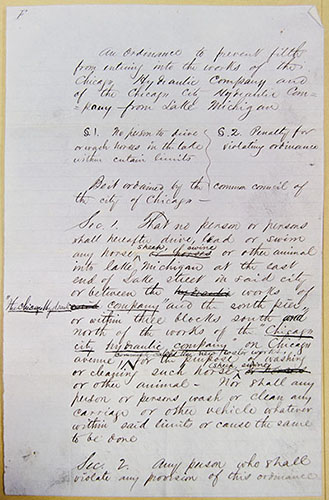 F
An Ordinance to prevent filth
from entering into the works of the
Chicago Hydraulic Company and
of the Chicago City Hydraulic Com-
=pany from Lake Michigan
S. 1. No person to drive
or wash horses in the lake
within certain limits
S. 2. Penalty for
violating ordinance
Be it ordained by the common council of
the city of Chicago -
Sec. 1. That no person or persons
shall hereafter drive, lead or swim
sheep, swine
any horse or horses or other animal
into lake Michigan at the east
end of Lake Street in said city
or between the Hydraulic works of
"the Chicago Hydraulic company" and the south pier,
or within three blocks south and
north of the works of the "Chicago
city Hydraulic company" on Chicago
avenue
commonly called the new water works
for the purpose of washing
sheep, swine
or cleaning such horse or horses
or other animal - Nor shall any
person or persons wash or clean any
carriage or other vehicle whatever
within said limits or cause the same
to be done
Sec. 2. Any person who shall
violate any provision of this ordinance